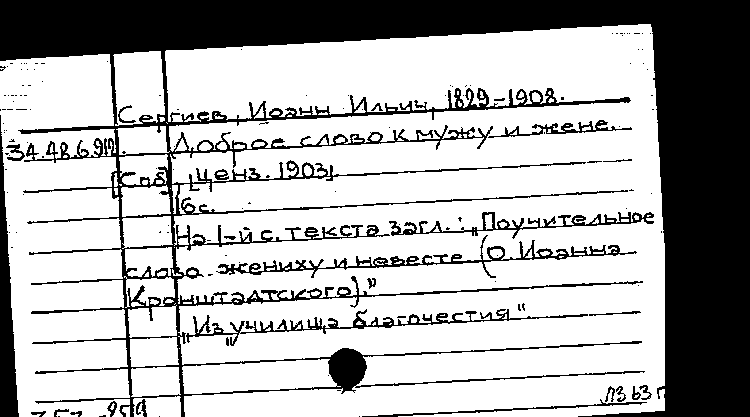 Сергиев, Иоанн Ильич, 1829-1908.
34.48.6.912. Доброе слово к мужу и жене.
[Спб], ценз. 1903].
16 с.
На 1-й с. текста загл.: „Поучительное
слово жениху и невесте (О. Иоанна
Кронштадтского)."
„Из „училища благочестия".
ЛЗ 63 г